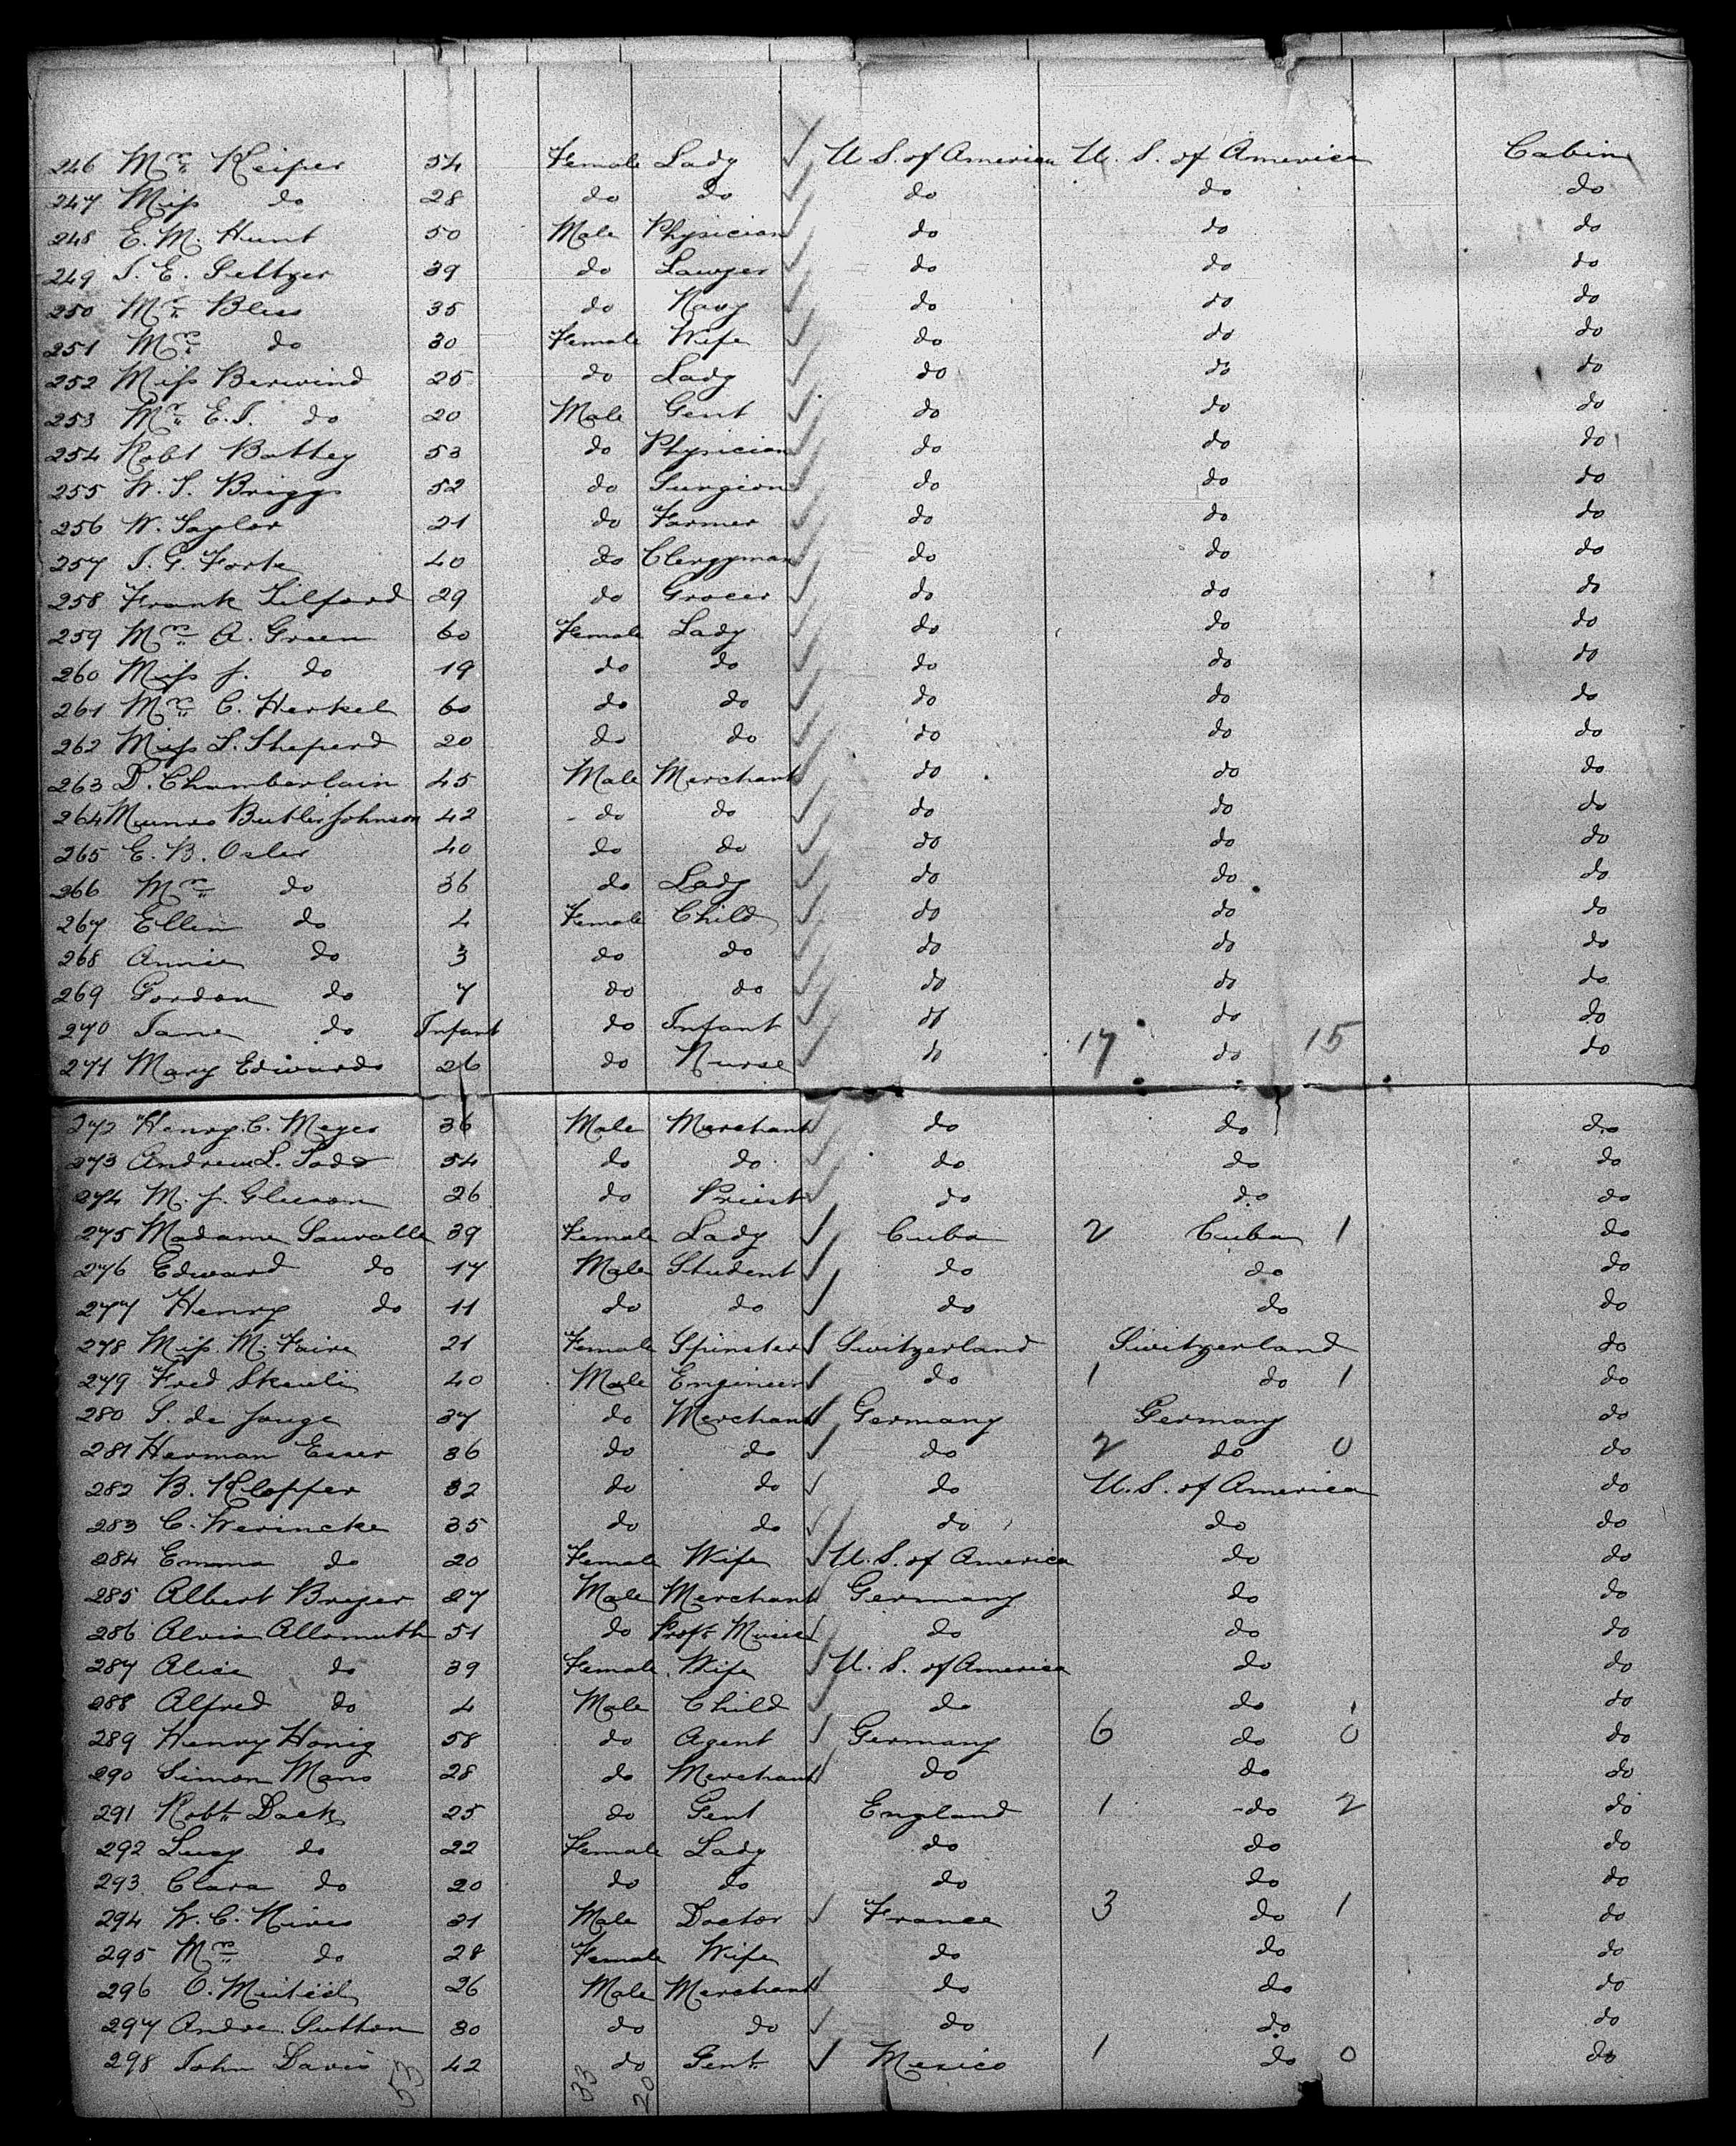 246 Mrs Keiper 54 Female Lady U S. of America U. S. of America Cabin
247 Miss do 28 do do do do do
248 E. M. Hunt 50 Male Physician do do do
249 J. E. Seltzer 39 do Lawyer do do do
250 Mr Bliss 35 do Navy do do do
251 Mrs do 30 Female Wife do do do
252 Miss Berwind 25 do Lady do do do
253 Mr E. J. do 20 Male Gent do do do
254 Robt Battey 53 do Physician do do do
255 W. S. Briggs 52 do Surgion do do do
256 W. Taylor 21 do Farmer do do do
257 40 do Clergyman do do do
258 Frank Tilford 29 do Grocer do do do
259 Mrs A. Green 60 Female Lady do do do
260 Miss J. do 19 do do do do do
261 Mrs C. Herkel 60 do do do do do
262 Miss L. Sheperd 20 do do do do do
263 D. Chamberlain 45 Male Merchant do do do
264 Munro Butler Johnson 42 do do do do do
265 E. B. Osler 40 do do do do do
266 Mrs do 36 do Lady do do do
267 Ellen do 4 Female Child do do do
268 Annie do 3 do do do do do
269 Gordon do 7 do do do do do
270 Jane do Infant do Infant do do do
271 Mary Edwards 26 do Nurse do 17 do 15 do
272 Henry C. Meyer 36 Male Merchant do do do
273 Andrew L. Todd 54 do do do do do
274 M. J. Gleeson 26 do Priest do do do
275 Madame Sauvalle 39 Female Lady Cuba 2 Cuba 1 do
276 Edward do 17 Male Student do do do
277 Henry do 11 do do do do do
278 Miss M. Faire 21 Female Spinster Switzerland Switzerland do
279 Fred 40 Male Engineer do 1 do 1 do
280 S. de Jonge 37 do Merchant Germany Germany do
281 Herman Esser 36 do do do 2 do 0 do
282 B. Klopper 32 do do do U. S. of America do
283 C. Werincke 35 do do do do do
284 Emma do 20 Female Wife U. S. of America do do
285 Albert Breyer 27 Male Merchant Germany do do
286 51 do Profr Music do do do
287 Alice do 39 Female Wife U. S. of America do do
288 Alfred do 4 Male Child do do do
289 Henry Honig 58 do Agent Germany 6 do 0 do
290 Simon Mans 28 do Merchant do do do
291 Robt Dack 25 do Gent England 1 do 2 do
292 Lucy do 22 Female Lady do do do
293 Clara do 20 do do do do do
294 W. C. 31 Male Doctor France 3 do 1 do
295 Mrs do 28 Female Wife do do do
296 O. 26 Male Merchant do do do
297 Andre Sutton 30 do do do do do
298 John Davis 42 do Gent Mexico 1 do 0 do
53 33 20